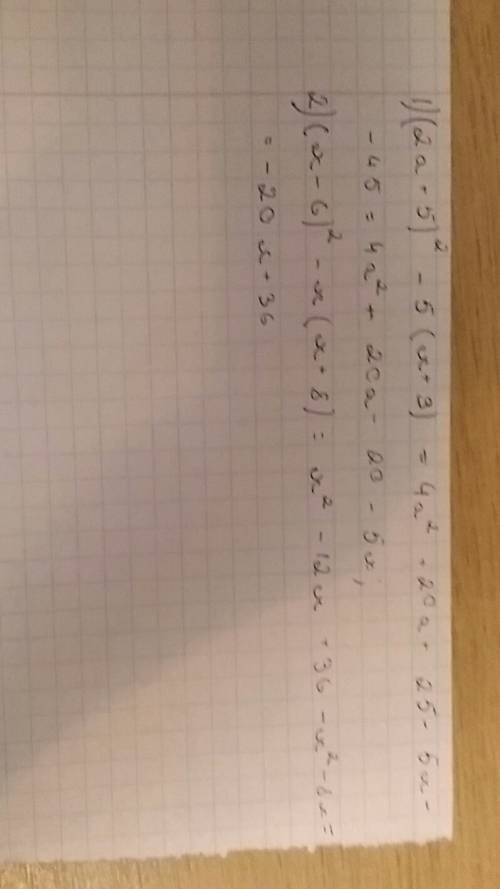 1)(2a+5)² - 5(x+3) = 4a² + 20a + 25 - 5x -
- 45 = 4a² + 20a - 20 - 5x;
2)(x-6)² - x(x+8) = x² - 12x + 36 - x² - 8x =
= - 20x + 36